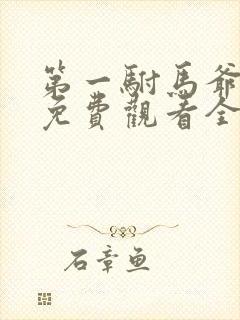 第一駙馬爺
免費觀看全
石章魚